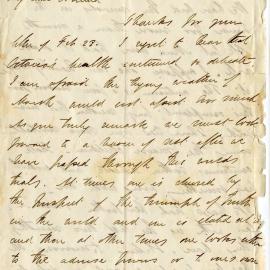 Thanks for your
letter of Feb 23. I regret to hear that
health continued so delicate
I am afraid the trying weather of
March would not afford her much
As you truly remark we must look
forward to a haven of rest after we
have passed through this world's
trials. At times one is cheered by
the prospect of the triumph of truth
in the world and one is elated at it
and then at other times one looks either
to the adverse powers or to one's own